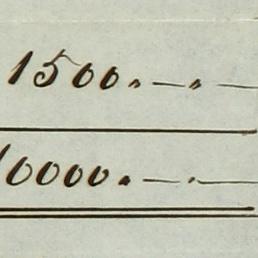 1500.—.—
10000.—.—